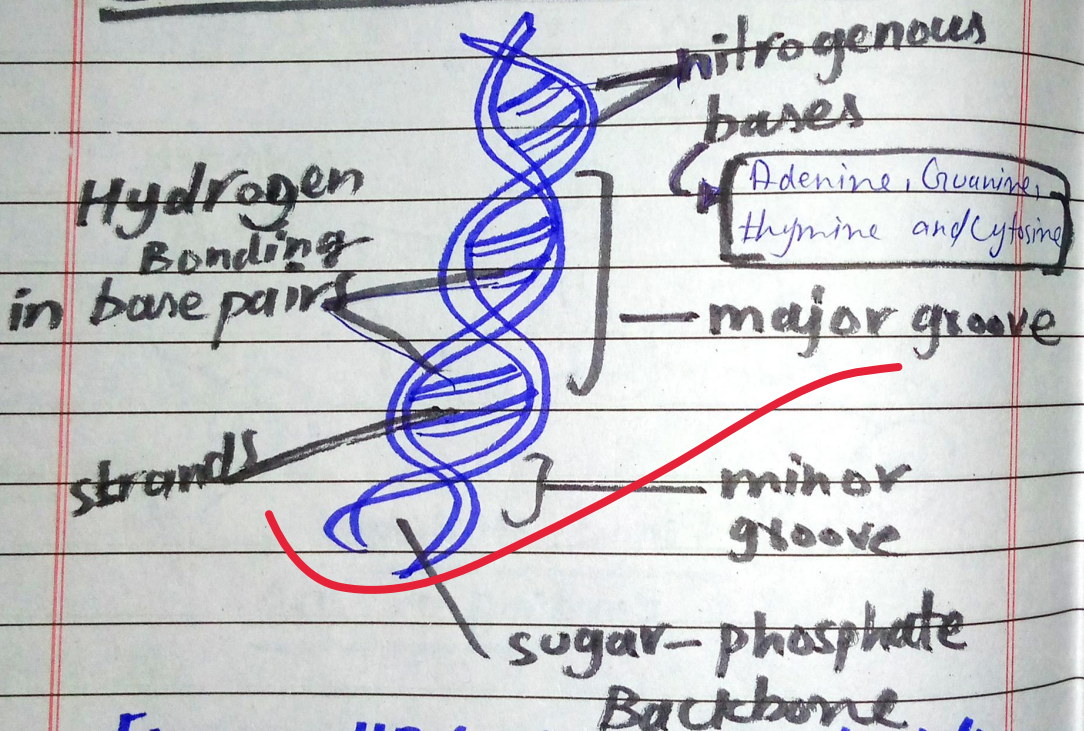 nitrogenous
bases
Adenine, Guanine,
thymine and Cytosine
Hydrogen
Bonding
in base pairs
major groove
strands
minor
groove
sugar-phosphate
Backbone